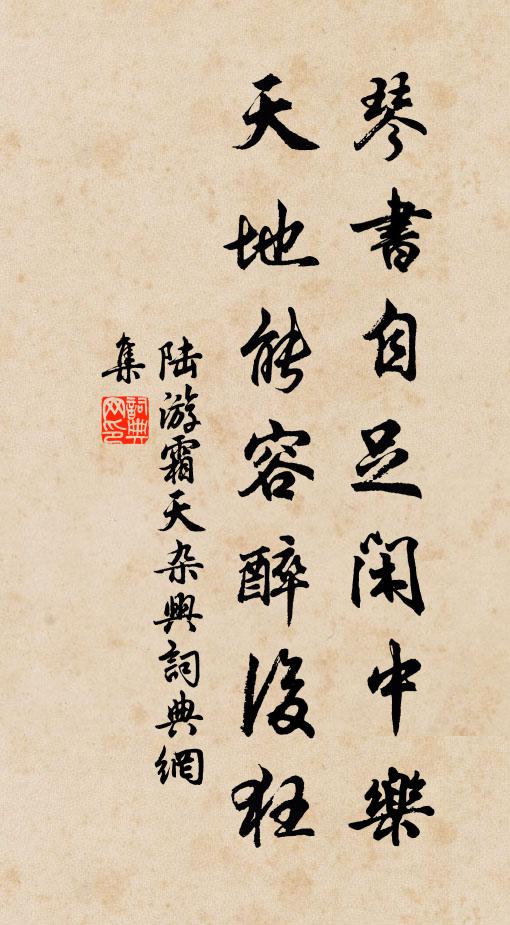 琴書自足閑中樂
天地能容醉後狂
陸游霜天杂興詞典網
集
詞典网印